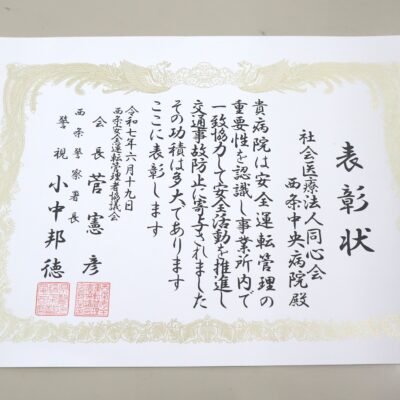 表彰状
社会医療法人同心会
西条中央病院殿
貴病院は安全運転管理の
重要性を認識し事業所内で
一致協力して安全活動を推進し
交通事故防止に寄与されました
その功積は多大であります
ここに表彰します
令和七年六月十九日
西条安全運転管理者協議会
会長 菅憲彦
西条警察署長
警視 小中邦徳